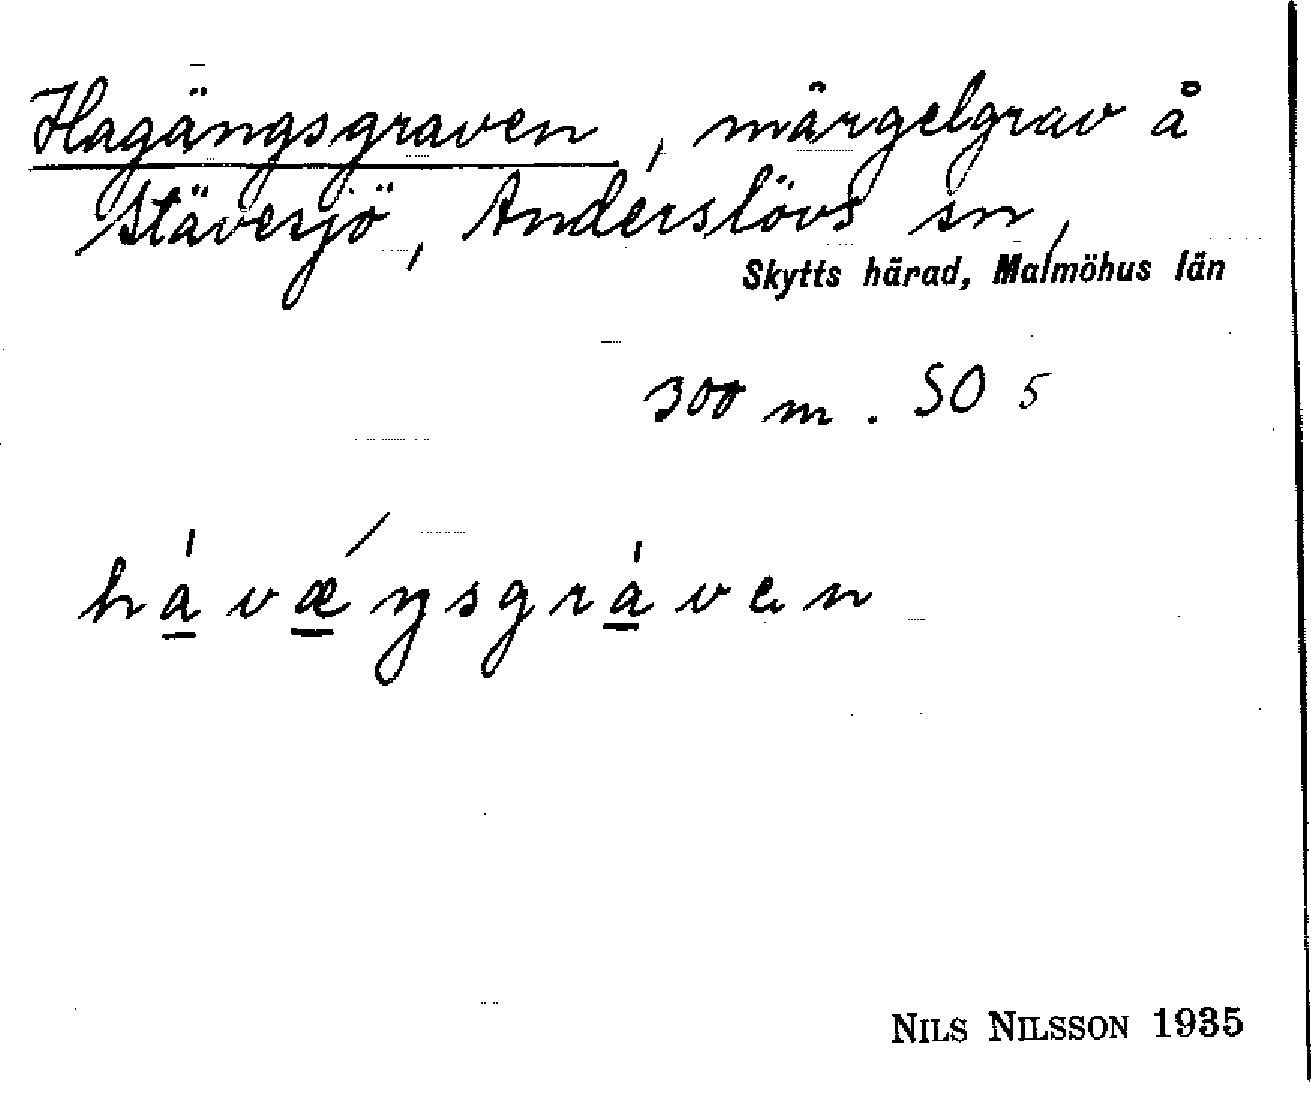 Hagängsgraven, märgelgrav å
Stävesjö, Anderslövs sn,
Skytts härad, Malmöhus län
300 m. SO 5
hávǽŋsgráven
NILS NILSSON 1935